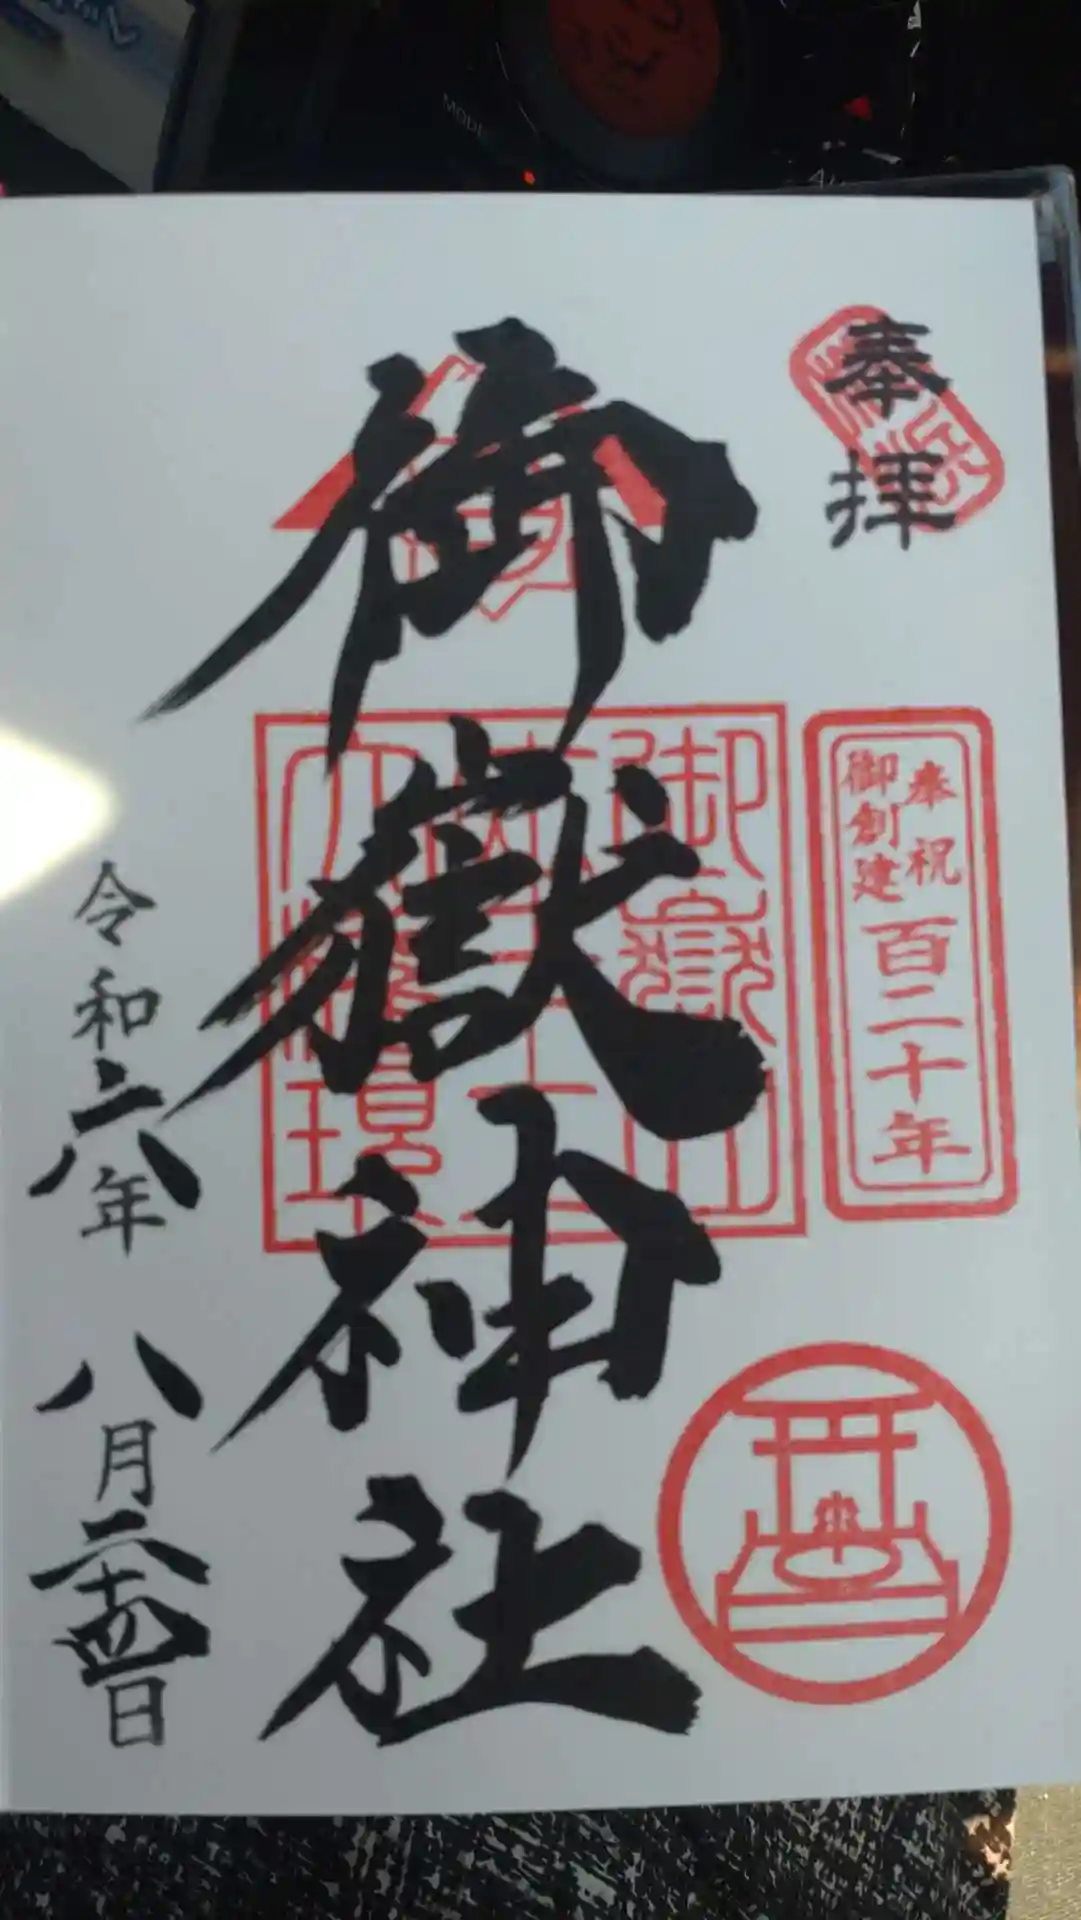 MODE
奉拝
奉祝
御創建
百二十年
御嶽神社
令和六年
八月二十四日